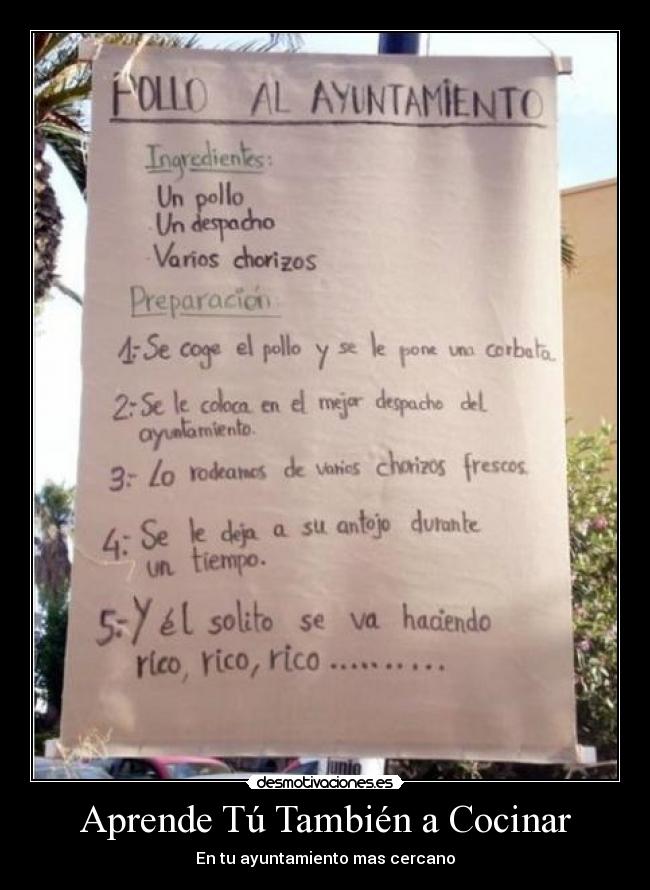 POLLO AL AYUNTAMIENTO
Ingredientes:
Un pollo
Un despacho
Varios chorizos
Preparación:
1:- Se coge el pollo y se le pone una corbata
2:- Se le coloca en el mejor despacho del
ayuntamiento.
3:- Lo rodeamos de varios chorizos frescos.
4:- Se le deja a su antojo durante
un tiempo.
5:- Y él solito se va haciendo
rico, rico, rico ..........
junio
desmotivaciones.es
Aprende Tú También a Cocinar
En tu ayuntamiento mas cercano